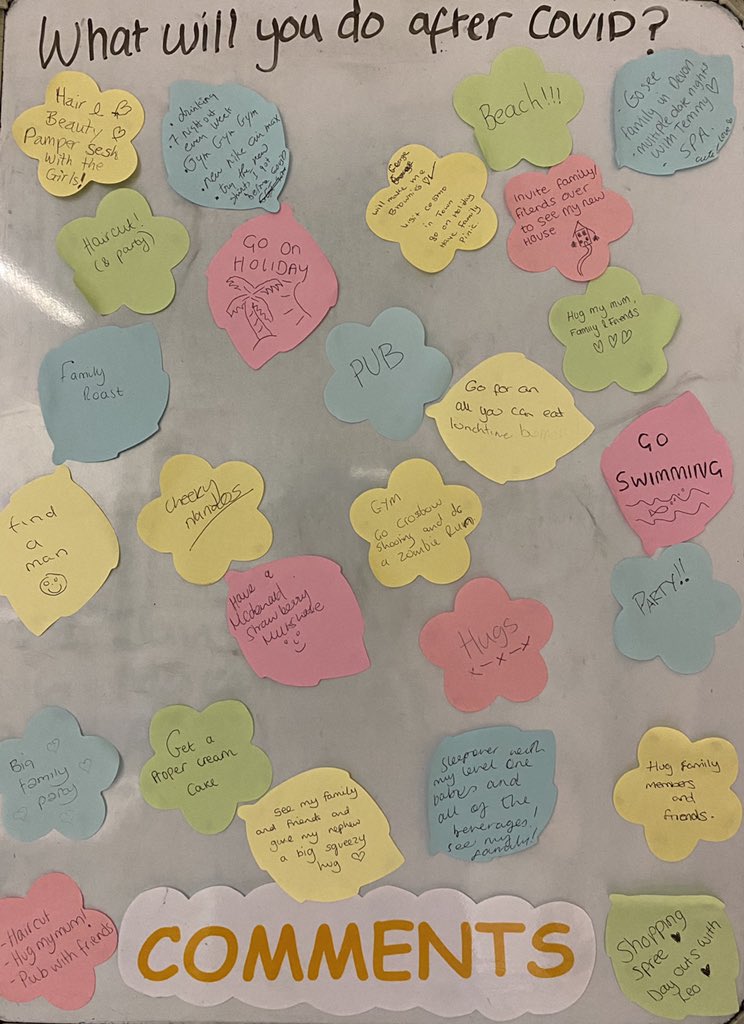 What will you do after COVID?
Hair &
Beauty
Pamper Sesh
With the
Girls!
• drinking
• 7 nights out
every week
• Gym Gym Gym
• new Nike air max
• try the new
before COVID
Beach!!!
Go see
family in Devon
• multiple date nights
with Temmy
- SPA
George
will make me
Brownies
visit Costa
in Town
go on Holiday
Have Family
Picnic
Invite family/
friends over
to see my new
House
Haircut!
(& party)
GO ON
HOLIDAY
Hug my mum,
Family & Friends
Family
Roast
PUB
Go for an
all you can eat
lunchtime
GO
SWIMMING
find
a
man
Cheeky
nandos
Gym
Go Crossbow
Shooting and do
a Zombie Run
Have a
Mcdonald
Strawberry
Milkshake
Hugs
x-x-x
PARTY!!
Big
Family
party
Get a
Proper cream
Cake
See my family
and friends and
give my nephew
a big squeezy
hug
Sleepover with
my level one
babes and
all of the
beverages!
See my
family!
Hug family
members
and
friends.
- Haircut
- Hug my mum!
- Pub with friends
COMMENTS
Shopping
Spree
Day outs with
Leo